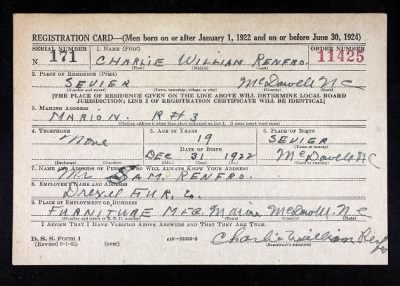 REGISTRATION CARD—(Men born on or after January 1, 1922 and on or before June 30, 1924)
SERIAL NUMBER 1. NAME (Print) ORDER NUMBER
N 171 CHARLIE WILLIAM RENFRO. 11425
(First) (Middle) (Last)
2. PLACE OF RESIDENCE (Print)
SEVIER McDowell NC
(Number and street) (Town, township, village, or city) (County) (State)
[THE PLACE OF RESIDENCE GIVEN ON THE LINE ABOVE WILL DETERMINE LOCAL BOARD
JURISDICTION; LINE 2 OF REGISTRATION CERTIFICATE WILL BE IDENTICAL]
3. MAILING ADDRESS
MARION. R#3
4. TELEPHONE 5. AGE IN YEARS 6. PLACE OF BIRTH
None 19 SEVIER
DATE OF BIRTH (Town or county)
DEC 31 1922 McDowell NC
(Exchange) (Number) (Mo.) (Day) (Yr.) (State or country)
7. NAME AND ADDRESS OF PERSON WHO WILL ALWAYS KNOW YOUR ADDRESS
Mr. SAM RENFRO.
8. EMPLOYER'S NAME AND ADDRESS
Drexel FUR. Co.
9. PLACE OF EMPLOYMENT OR BUSINESS
FURNITURE MFG. Marion McDowell. N-C
(Number and street or R. F. D. number) (Town) (County) (State)
I AFFIRM THAT I HAVE VERIFIED ABOVE ANSWERS AND THAT THEY ARE TRUE.
D. S. S. Form 1 Charlie William Renfro
(Revised 6-1-42) (Registrant's signature)
(over)